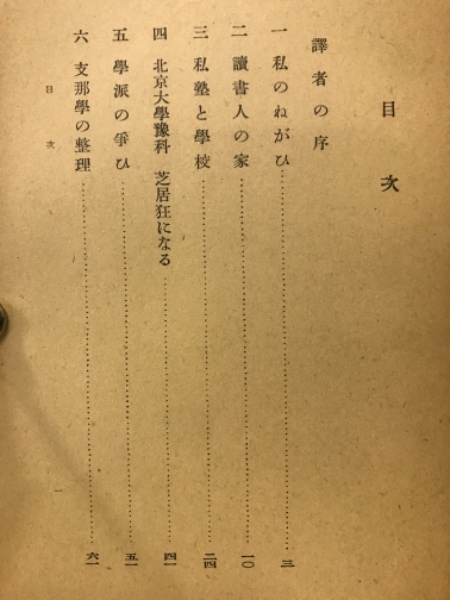 目次
譯者の序
一 私のねがひ……三
二 讀書人の家……一〇
三 私塾と學校……二四
四 北京大學豫科 芝居狂になる……四一
五 學派の爭ひ……五一
六 支那學の整理……六一
目次
一